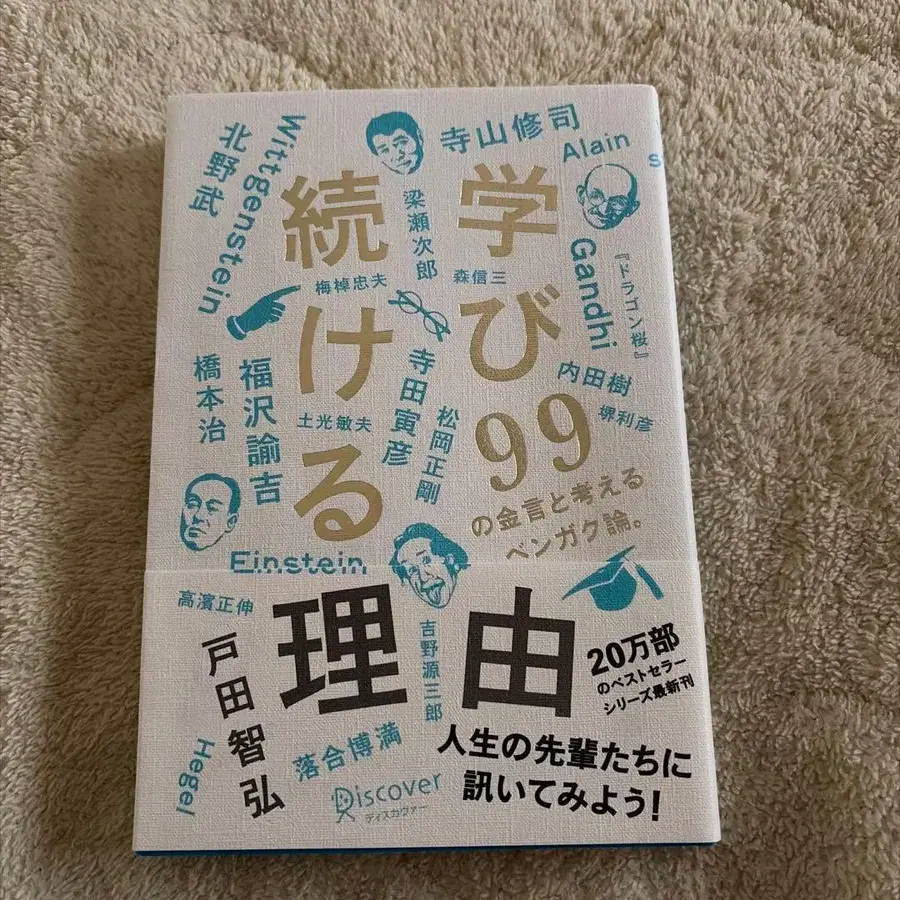 学び
続ける
理由
99
の金言と考える
ベンガク論。
戸田智弘
寺山修司
Alain
Wittgenstein
北野武
梁瀬次郎
梅棹忠夫
森信三
Gandhi
『ドラゴン桜』
内田樹
堺利彦
橋本治
福沢諭吉
土光敏夫
寺田寅彦
松岡正剛
Einstein
高濱正伸
吉野源三郎
Hegel
落合博満
20万部
のベストセラー
シリーズ最新刊
人生の先輩たちに
訊いてみよう!
Discover
ディスカヴァー